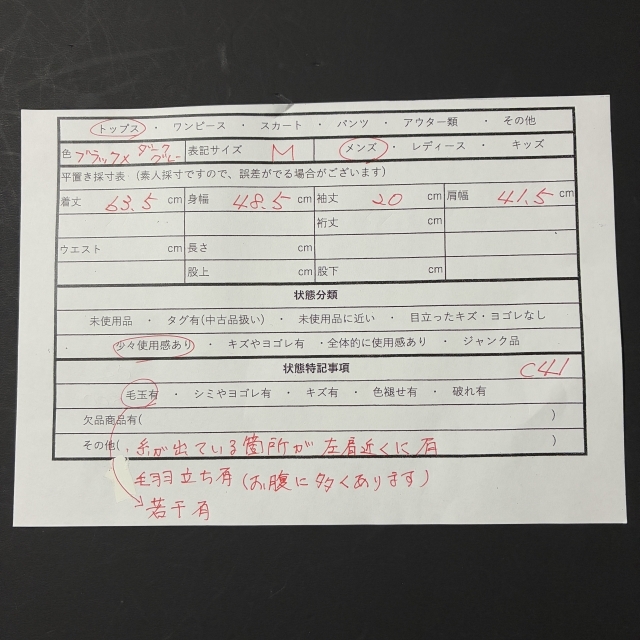 トップス ・ ワンピース ・ スカート ・ パンツ ・ アウター類 ・ その他
色 ブラック× ダークグレー 表記サイズ M メンズ ・ レディース ・ キッズ
平置き採寸表 (素人採寸ですので、誤差がでる場合がございます)
着丈 63.5 cm 身幅 48.5 cm 袖丈 20 cm 肩幅 41.5 cm
裄丈 cm
ウエスト cm 長さ cm
股上 cm 股下 cm
状態分類
未使用品 ・ タグ有(中古品扱い) ・ 未使用品に近い ・ 目立ったキズ・ヨゴレなし
少々使用感あり ・ キズやヨゴレ有 ・全体的に使用感あり ・ ジャンク品
状態特記事項 C41
毛玉有 ・ シミやヨゴレ有 ・ キズ有 ・ 色褪せ有 ・ 破れ有
欠品商品有( )
その他( ・糸が出ている箇所が左肩近くに有 )
毛羽立ち有(お腹に多くあります)
若干有